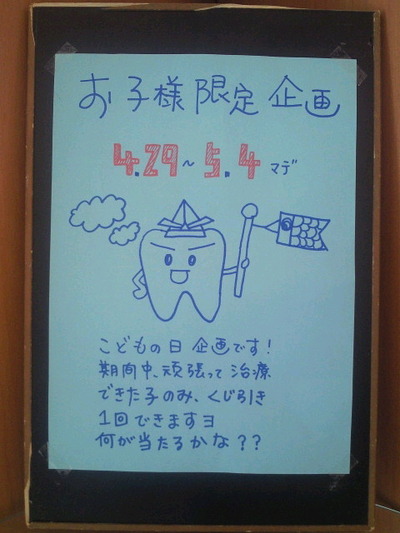 お子様限定企画
4.29～5.4マデ
こどもの日企画です！
期間中、頑張って治療
できた子のみ、くじ引き
1回できますヨ
何が当たるかな？？